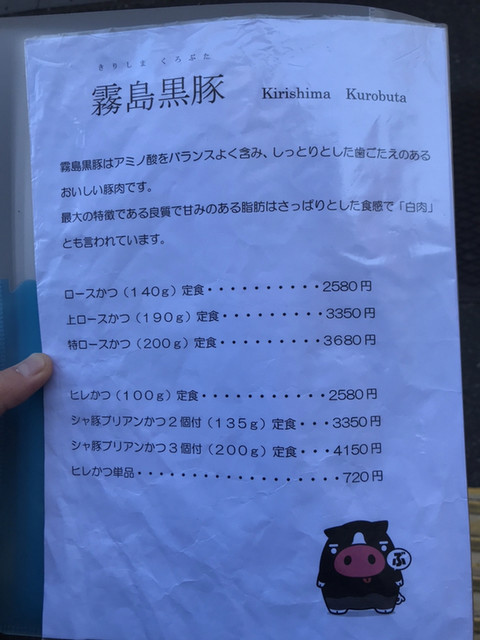 きりしま くろぶた
霧島黒豚 Kirishima Kurobuta
霧島黒豚はアミノ酸をバランスよく含み、しっとりとした歯ごたえのある
おいしい豚肉です。
最大の特徴である良質で甘みのある脂肪はさっぱりとした食感で「白肉」
とも言われています。
ロースかつ（140g）定食・・・・・・・・・・2580円
上ロースかつ（190g）定食・・・・・・・・・3350円
特ロースかつ（200g）定食・・・・・・・・・3680円
ヒレかつ（100g）定食・・・・・・・・・・・2580円
シャ豚ブリアンかつ2個付（135g）定食・・・3350円
シャ豚ブリアンかつ3個付（200g）定食・・・4150円
ヒレかつ単品・・・・・・・・・・・・・・・・・・720円
ぶ